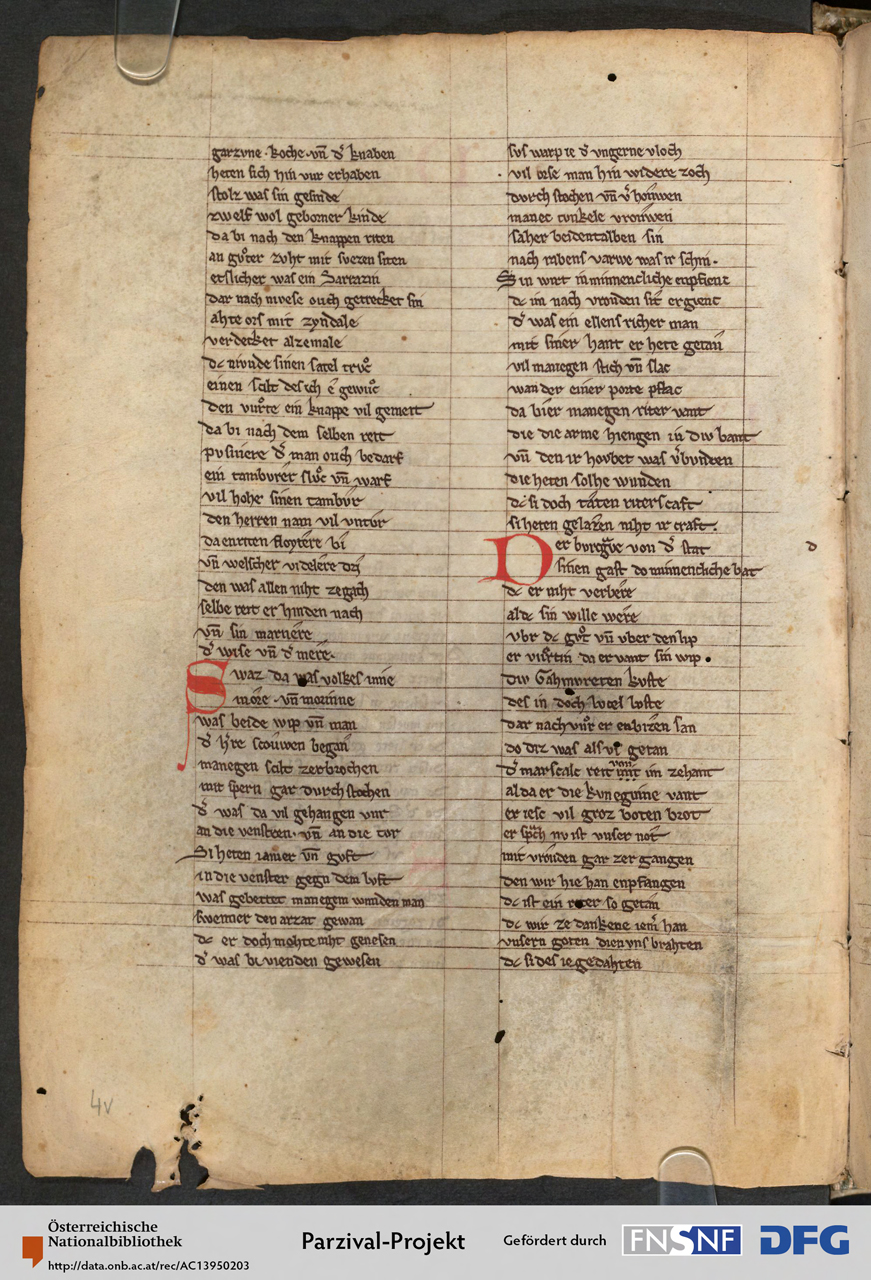 garzvne · koche · vn̄ d͛ knaben
heten sich hin vur erhaben
stolz was sin gesinde
zwelf wol geborner kinde
da bi nach den knappen riten
an gvͦter zvht mit svezen siten
etslicher was ein Sarrazin
dar nach mvese ovch getrecket sin
ahte ors mit zyndale
verdecket alzemale
dc nivnde sinen satel trvͦc
einen scilt des ich e gewuͦc
den vuͦrte ein knappe vil gemeit
da bi nach dem selben reit
pvsinere d͛ man ovch bedarf
ein tamburer slvͦc vn̄ warf
vil hohe sinen tambvr
den herren nam vil vntvr
da enriten floytere bi
vn̄ welscher videlere dri
den was allen niht ze gach
selbe reit er hinden nach
vn̄ sin marnere
d͛ wise vn̄ d͛ mere ·
Swaz da was volkes inne
more · vn̄ morinne
was beide wip vn̄ man
d͛ h͛re scouwen began
manegen scilt zerbrochen
mit spern gar durch stochen
d͛ was da vil gehangen vur
an die venstren · vn̄ an die tor
Si heten iamer vn̄ gvft
in die venster gegn dem lvft
was gebettet manegem wunden man
swenner den arzat gewan
dc er doch mohte niht genesen
d͛ was bi vienden gewesen
svs warp ie d͛ vngerne vloch
vil orse man hin widere zoch
dvrch stochen vn̄ v͛ houwen
manec tvnkele vrouwen
saher beidentalben sin
nach rabens varwe was ir schin ·
Sin wirt in minnencliche enpfienc
dc im nach vrouden sit ergienc
d͛ was ein ellens richer man
mit siner hant er hete getan
vil manegen stich vn̄ slac
wan der einer porte pflac
da bi er manegen riter vant
die die arme hiengen in div bant
vn̄ den ir houbet was v͛bunden
die heten solhe wunden
dc si doch taten riterscaft
si heten gelazen niht ir craft ·
Der bvrcgᷓve von d͛ stat
sinen gast do minnencliche bat
dc er niht verbere
al dc sin wille were
vbr dc gvͦt vn̄ vber den lip
er vuͦrtin da er vant sin wip ·
div Gahmvreten kvste
des in doch lvcel lvste
dar nach vuͦr er enbizen san
do diz was alsvs getan
d͛ marscalc reit von im zehant
alda er die kvneginne vant
er iesc vil groz boten brot
er spᷓch nv ist vnser not
mit vrouden gar zergangen
den wir hie han enpfangen
dc ist ein riter so getan
dc wir ze dankene iem͛ han
vnsern goten die n vns brahten
dc si des ie gedahten
d
4v
Österreichische
Nationalbibliothek
http://data.onb.ac.at/rec/AC13950203
Parzival-Projekt
Gefördert durch
FNSNF
DFG